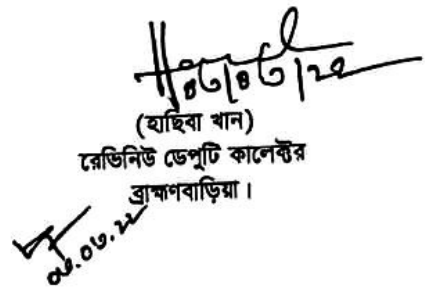 (হাছিবা খান)
রেভিনিউ ডেপুটি কালেক্টর
ব্রাহ্মণবাড়িয়া।
০৬.০৬.২২